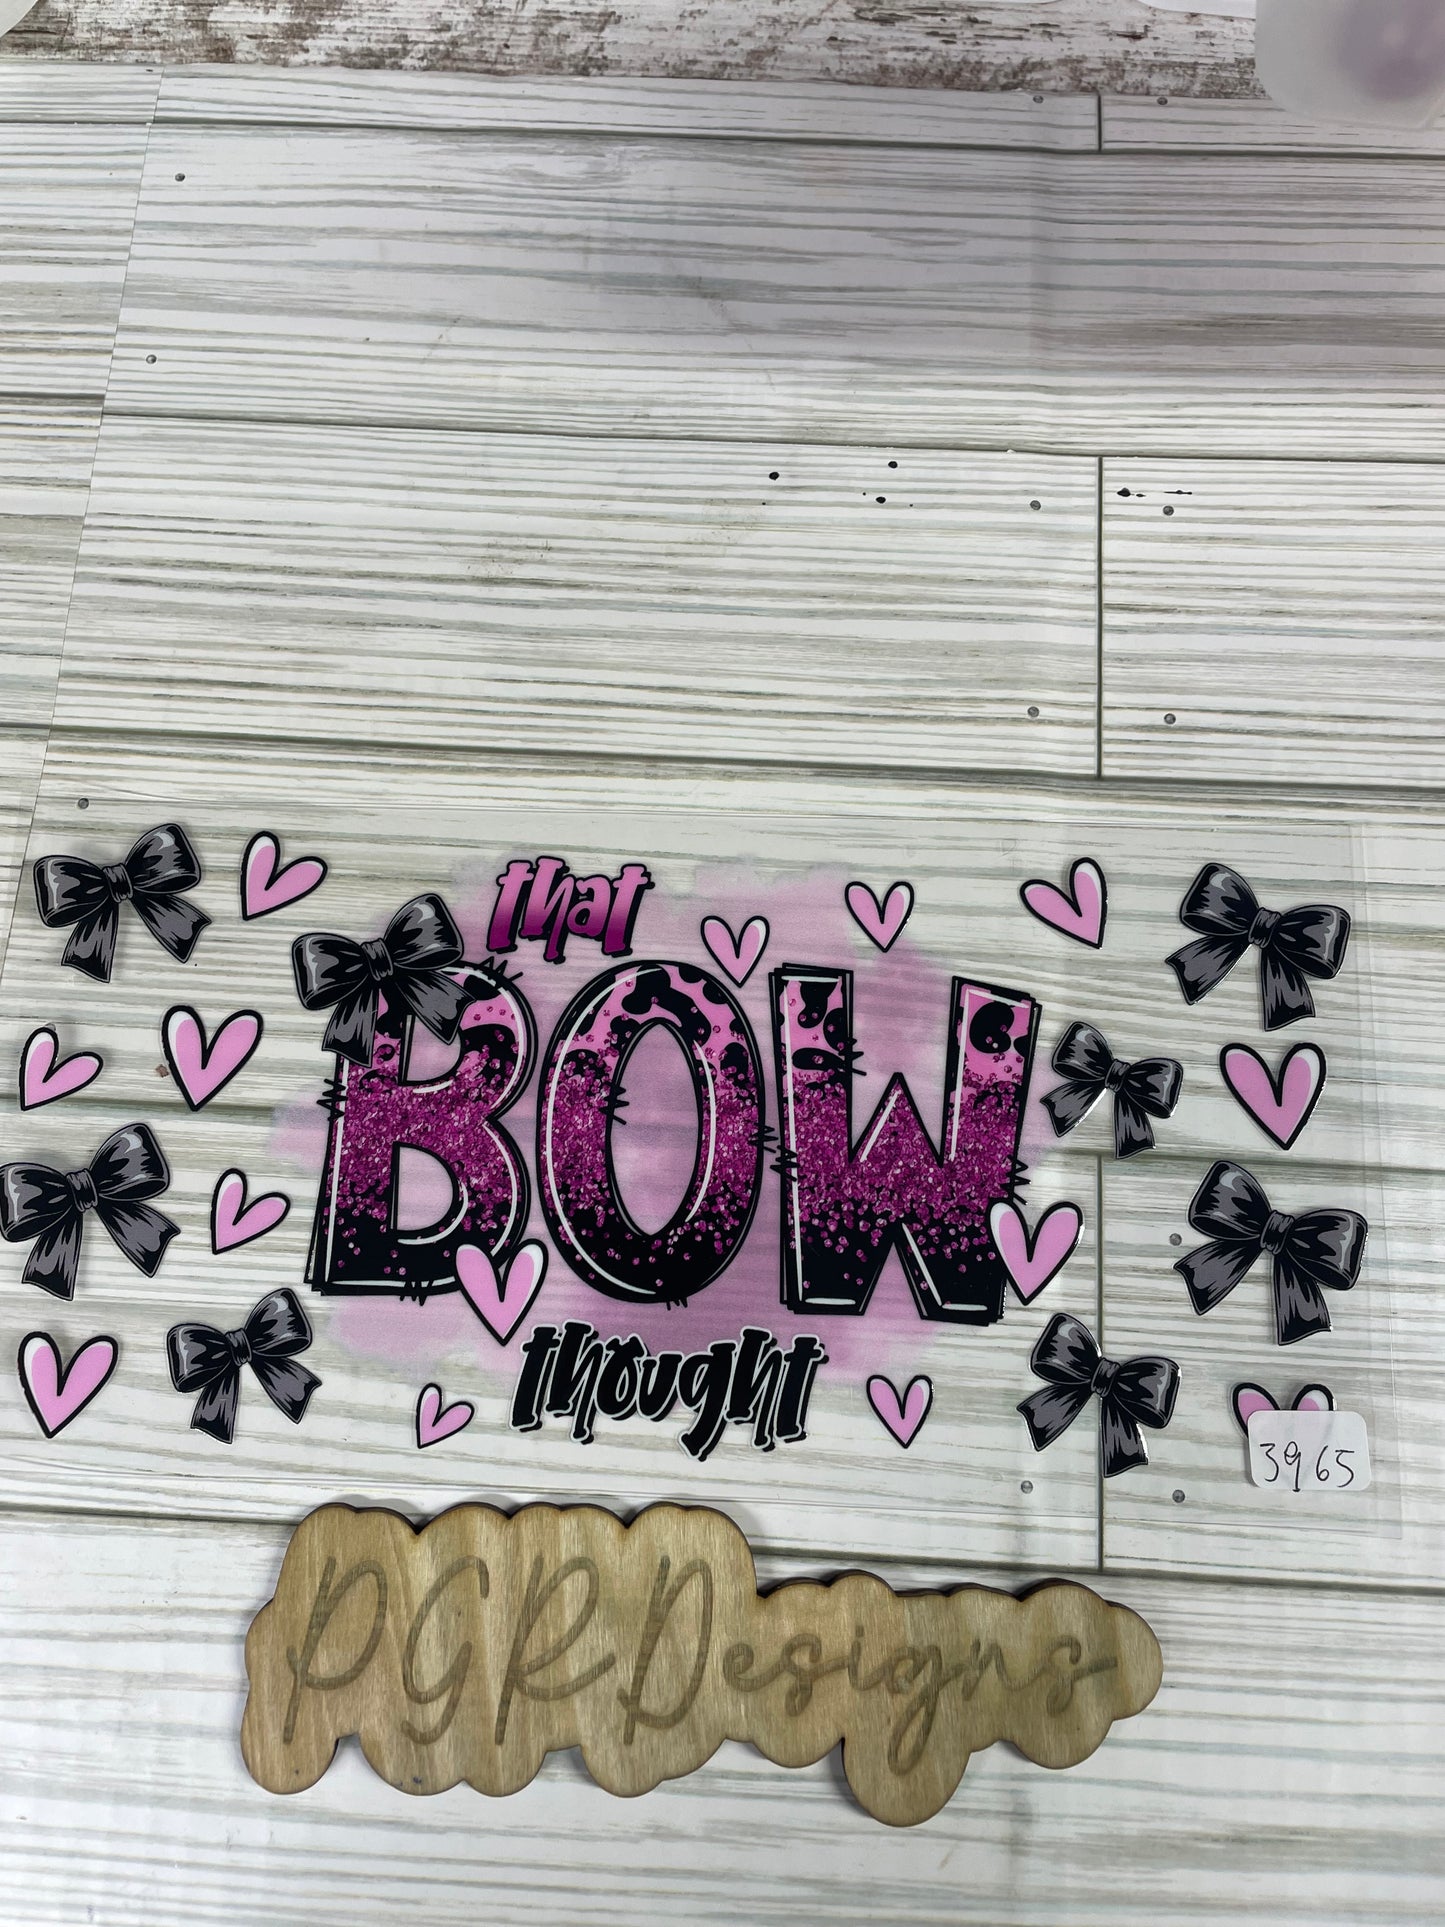 that
BOW
thought
3965
PGRDesigns